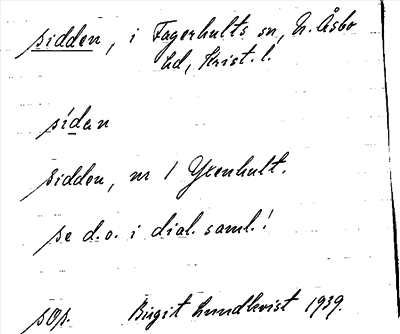 sidden, i Fagerhults sn, N. Åsbo
hd, Krist. l.
sídan
sidden, nr 1 Yxenhult.
se d.o. i dial. saml.!
sOp. Birgit Lundkvist 1939.